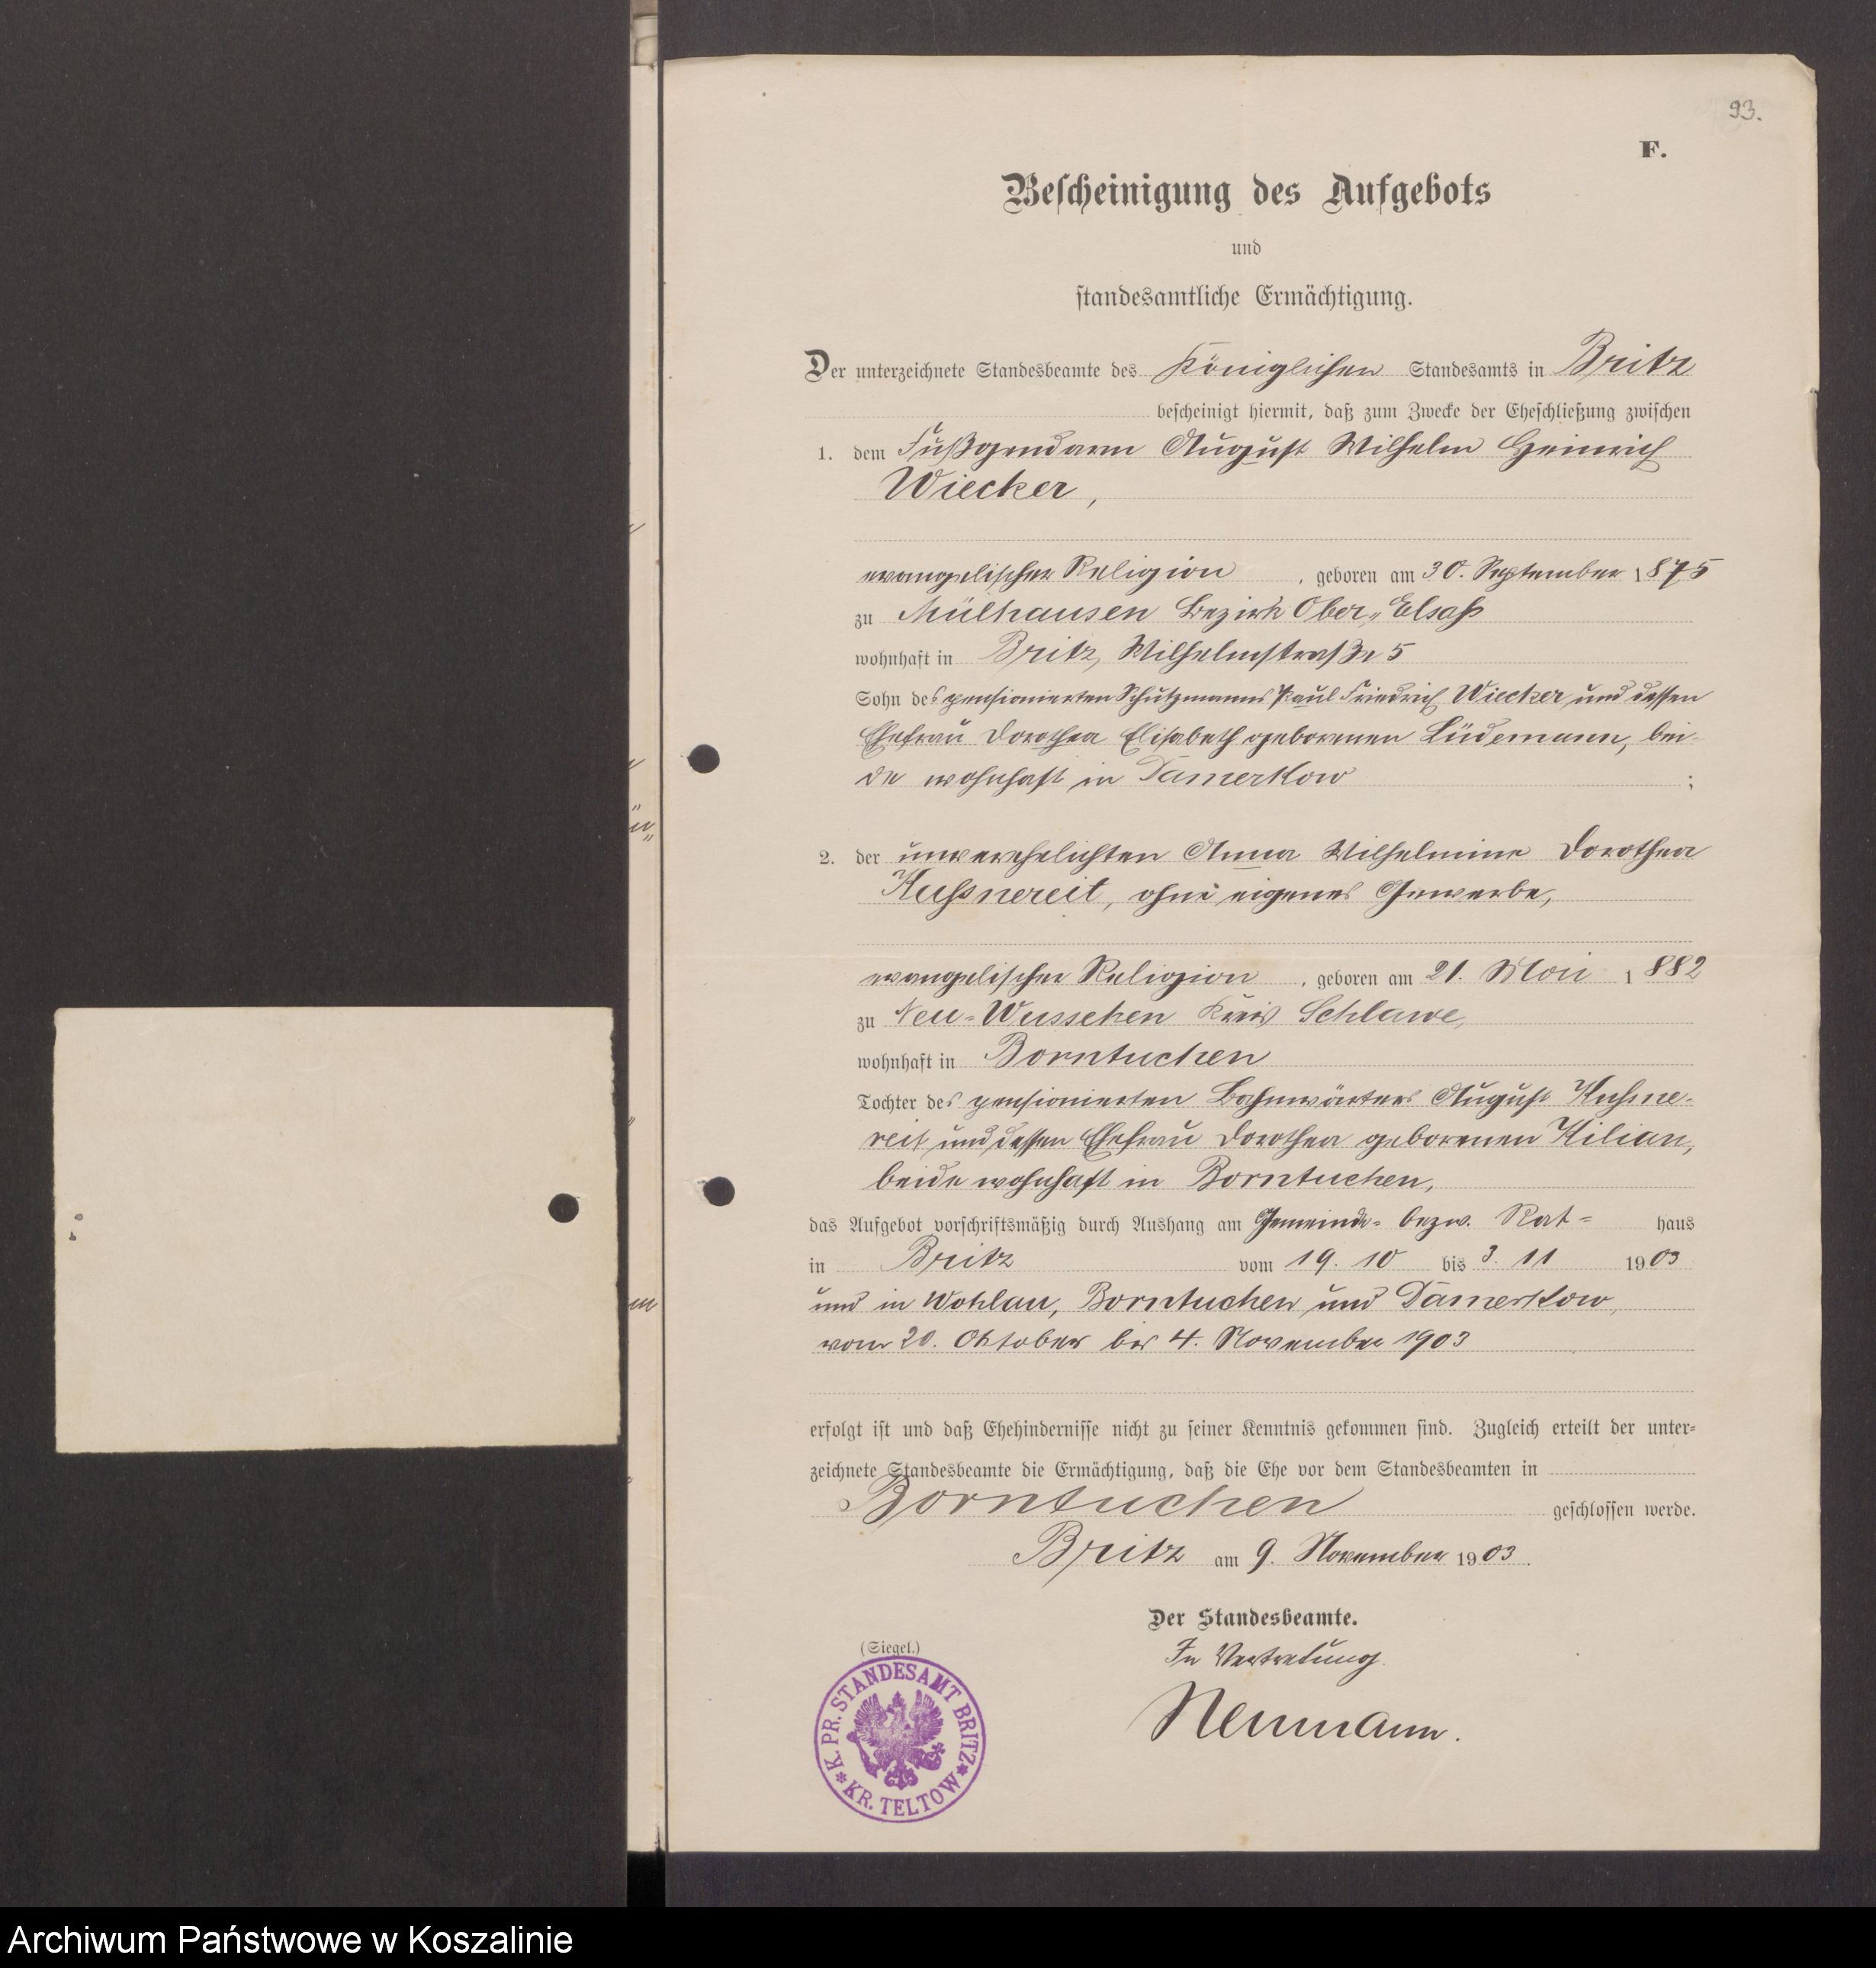 93.
F.
Bescheinigung des Aufgebots
und
standesamtliche Ermächtigung.
Der unterzeichnete Standesbeamte des Königlichen Standesamts in Britz
bescheinigt hiermit, daß zum Zwecke der Eheschließung zwischen
1. dem Fußgendarm August Wilhelm Heinrich
Wiecker,
evangelischer Religion, geboren am 30. September 1875
zu Mülhausen Bezirk Ober-Elsaß
wohnhaft in Britz, Wilhelmstraße 5
Sohn des pensionierten Schutzmanns Paul Friedrich Wiecker und dessen
Ehefrau Dorothea Elisabeth geborenen Lüdemann, bei-
de wohnhaft in Damerkow ;
2. der unverehelichten Anna Wilhelmine Dorothea
Kussnereit, ohne eigenes Gewerbe,
evangelischer Religion, geboren am 21. Mai 1882
zu Neu-Wusseken Kreis Schlawe,
wohnhaft in Borntuchen
Tochter des pensionierten Bahnwärters August Kussne-
reit und dessen Ehefrau Dorothea geborenen Kilian,
beide wohnhaft in Borntuchen,
das Aufgebot vorschriftsmäßig durch Aushang am Gemeinde- bezw. Rat- haus
in Britz vom 19. 10 bis 3. 11 1903
und in Wohlau, Borntuchen und Damerkow,
vom 20. Oktober bis 4. November 1903
erfolgt ist und daß Ehehindernisse nicht zu seiner Kenntnis gekommen sind. Zugleich erteilt der unter-
zeichnete Standesbeamte die Ermächtigung, daß die Ehe vor dem Standesbeamten in
Borntuchen geschlossen werde.
Britz am 9. November 1903.
Der Standesbeamte.
In Vertretung
Neumann.
(Siegel.)
K. PR. STANDESAMT BRITZ
* KR. TELTOW *
Archiwum Państwowe w Koszalinie